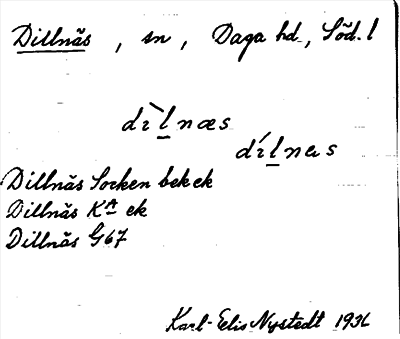 Dillnäs, sn, Daga hd, Söd. l
dìlnæs
dílnas
Dillnäs Socken bek ek
Dillnäs Ka ek
Dillnäs G67
Karl-Eelis Nystedt 1936